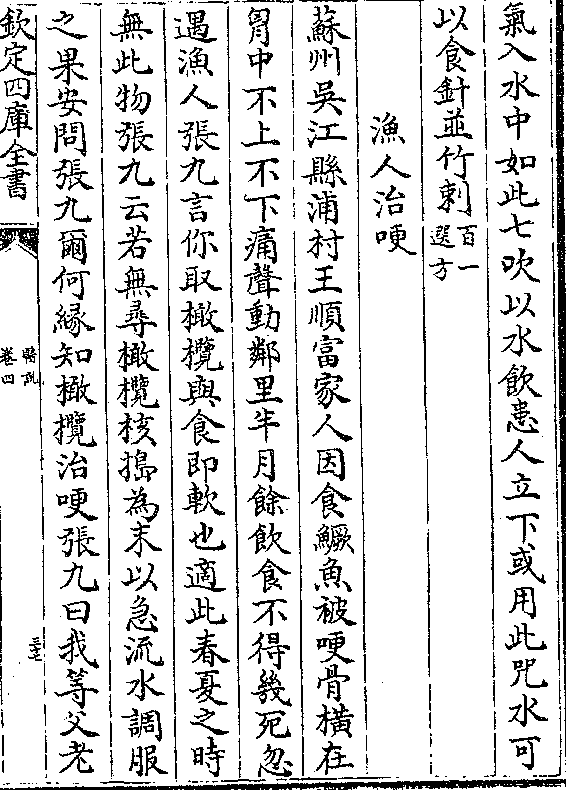 氣入水中如此七吹以水飲患人立下或用此咒水可
以食針並竹刺百一選方
漁人治哽
蘇州吳江縣浦村王順富家人因食鱖魚被哽骨橫在
胷中不上不下痛聲動鄰里半月餘飲食不得幾死忽
遇漁人張九言你取橄欖與食即軟也適此春夏之時
無此物張九云若無尋橄欖核搗為末以急流水調服
之果安問張九爾何縁知橄欖治哽張九曰我等父老
欽定四庫全書
醫說
卷四
三七